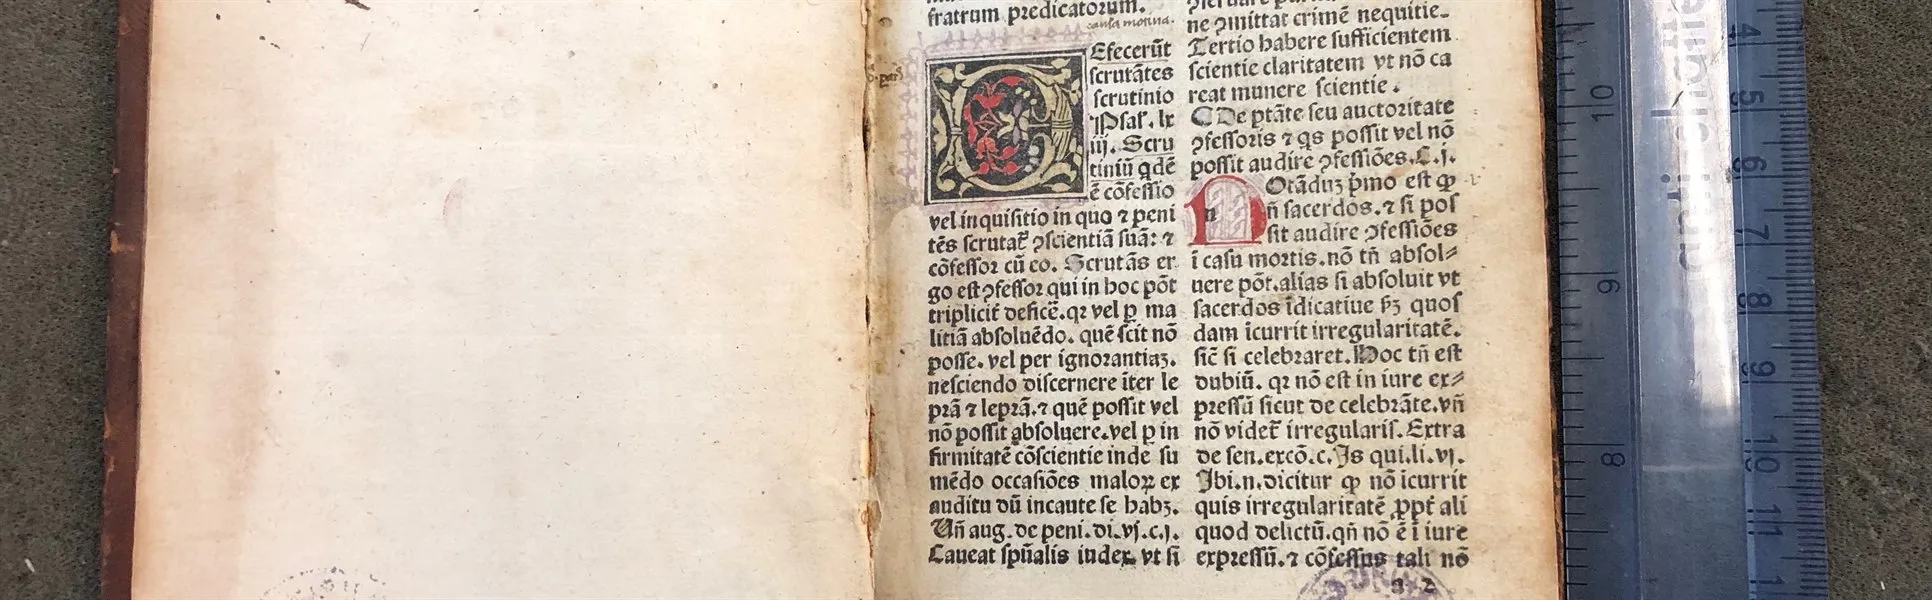 fratrum predicatorum.
causa motiua.
Efecerũt
scrutãtes
scrutinio
Psal. lx
iij. Scru
tiniũ qdẽ
ẽ cõfessio
vel inquisitio in quo ⁊ peni
tẽs scrutat̃ ꝯscientiã suã: ⁊
cõfessor cũ eo. Scrutãs er
go est ꝯfessor qui in hoc põt
triplicit̃ deficẽ. qꝛ vel ꝑ ma
litiã absoluẽdo. quẽ scit nõ
posse. vel per ignorantiaꝫ.
nesciendo discernere ĩter le
prã ⁊ leprã. ⁊ quẽ possit vel
nõ possit absoluere. vel ꝑ in
firmitatẽ cõscientie inde su
mẽdo occasiões maloꝝ ex
auditu dũ incaute se habꝫ.
Uñ aug. de peni. di. vj. c. j.
Caueat spũalis iudex. vt si
ne ꝯmittat crimẽ nequitie.
Tertio habere sufficientem
scientie claritatem vt nõ ca
reat munere scientie.
De ptãte seu auctoritate
ꝯfessoris ⁊ qs possit vel nõ
possit audire ꝯfessiões. C. j.
Otãduꝫ p̃mo est ꝙ
ñ sacerdos. ⁊ si pos
sit audire ꝯfessiões
ĩ casu mortis. nõ tñ absol⸗
uere põt. alias si absoluit vt
sacerdos ĩdicatiue ẜꝫ quos
dam ĩcurrit irregularitatẽ.
sic̃ si celebraret. Hoc tñ est
dubiũ. qꝛ nõ est in iure ex⸗
pressũ sicut de celebrãte. vñ
nõ videt̃ irregularis. Extra
de sen. excõ. c. Is qui. li. vj.
Ibi. n. dicitur ꝙ nõ ĩcurrit
quis irregularitatẽ ꝓpt̃ ali
quod delictũ. qñ nõ ẽ ĩ iure
expressũ. ⁊ cõfessus tali nõ
a 2
10
9
8
4
5
6
7
8
9
10
11